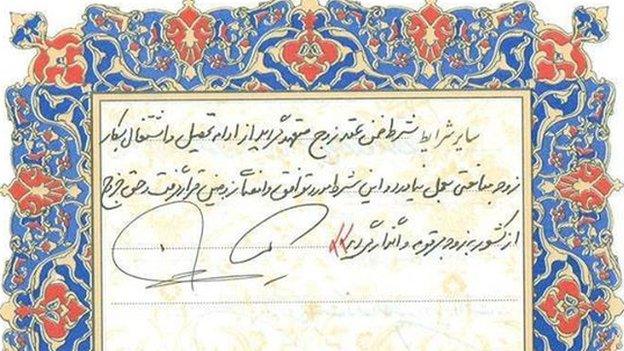 سایر شرایط شرط ضمن عقد زوج متعهد گردید از ادامه تحصیل و اشتغال بکار
زوجه ممانعتی بعمل نیاورد و این شرط مورد توافق و امضا زوجین قرار گرفت حق خروج
از کشور به زوجه مرقومه واگذار گردید